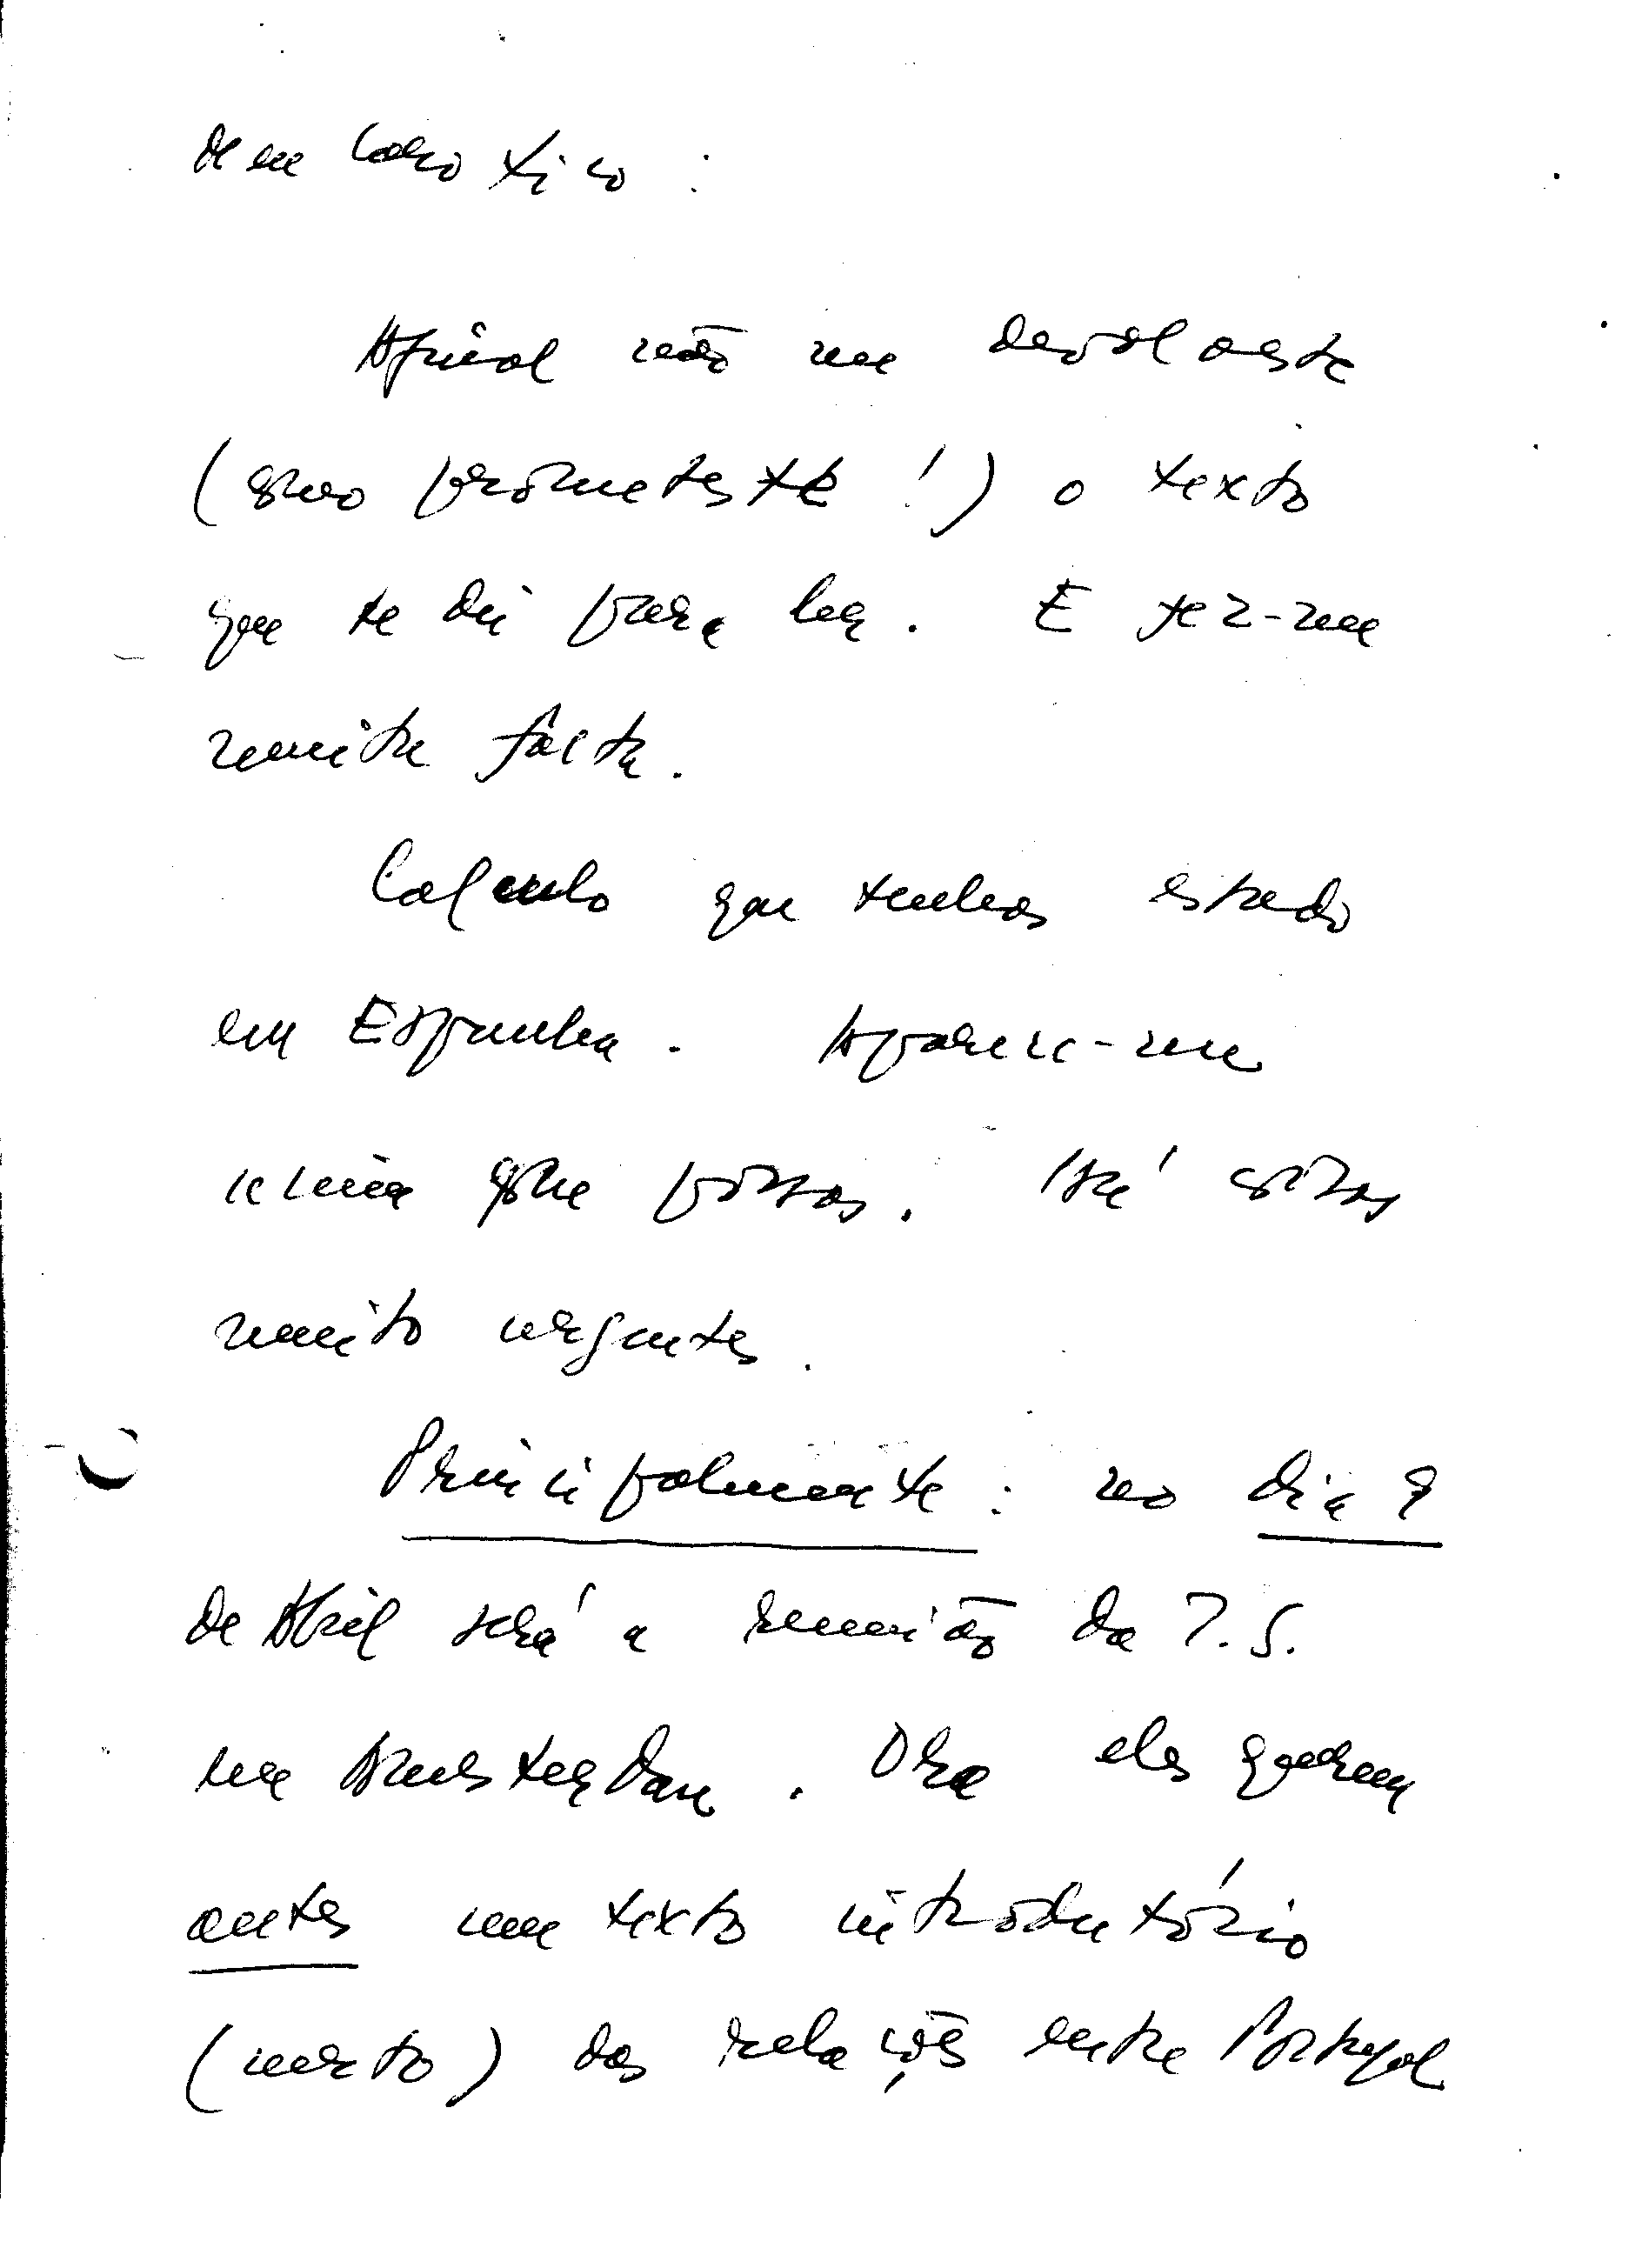 Meu Caro Xico:
Afinal não me devolveste
(como prometeste!) o texto
que te dei para ler. E fez-me
muita falta.
Calculo que tenhas estado
em Espanha. Aparece-me
acima que possas. Há coisas
muito urgentes.
Principalmente: no dia 9
de Abril será a reunião da I.S.
em Amsterdam. Ora eles querem
antes um texto introdutório
(curto) das relações entre Portugal